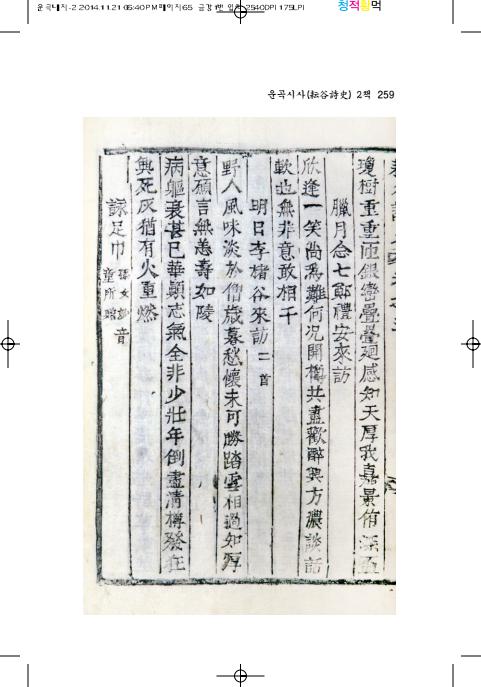 운곡대지-2 2014.11.21 05:40 PM 페이지65
2540DPI 175LPI
청적황먹
운곡시사(耘谷詩史) 2책 259
瓊樹重重匝銀巒疊疊廻感知天厚我嘉景侑深
臘月念七郞禮安來訪
欣逢一笑尙爲難何況開樽共盡歡醉興方濃談話
軟也無非意敢相干
明日李楮谷來訪二首
野人風味淡於僧歲暮愁懷未可勝踏雪相過知厚
意願言無恙壽如陵
病軀衰甚已華顚志氣全非少壯年倒盡清樽發狂
興死灰猶有火重燃
詠足巾
音